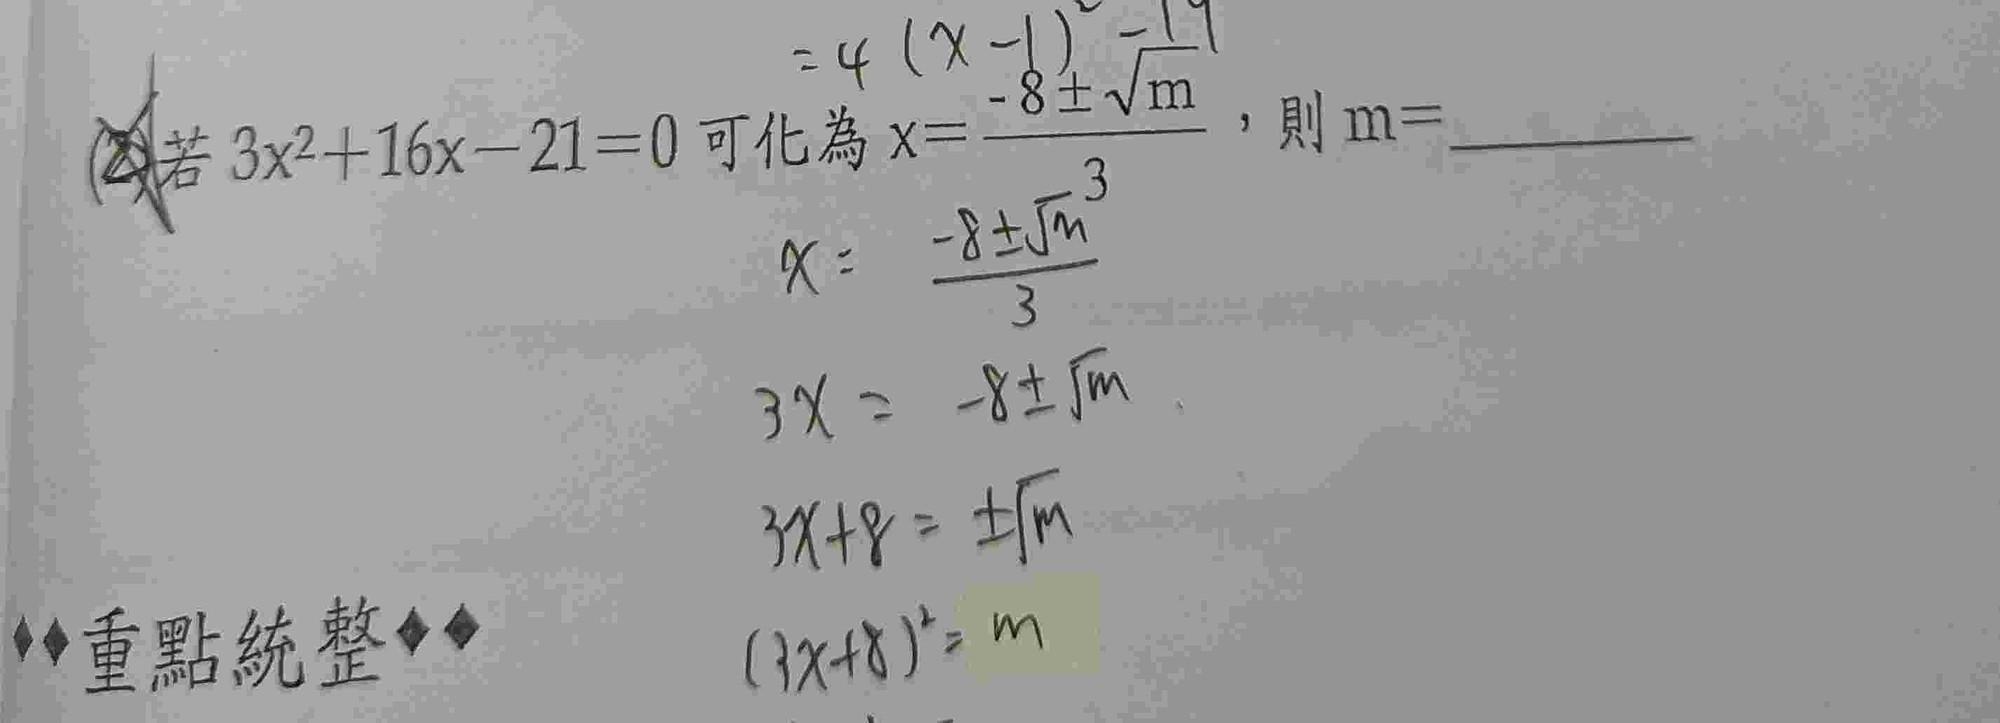 =4(x-1)²-19
(2)若 3x²+16x-21=0 可化為 x=\frac{-8±√m}{3},則 m=______
x= \frac{-8±√m}{3}
3x = -8±√m
3x+8 = ±√m
(3x+8)²= m
♦♦重點統整♦♦